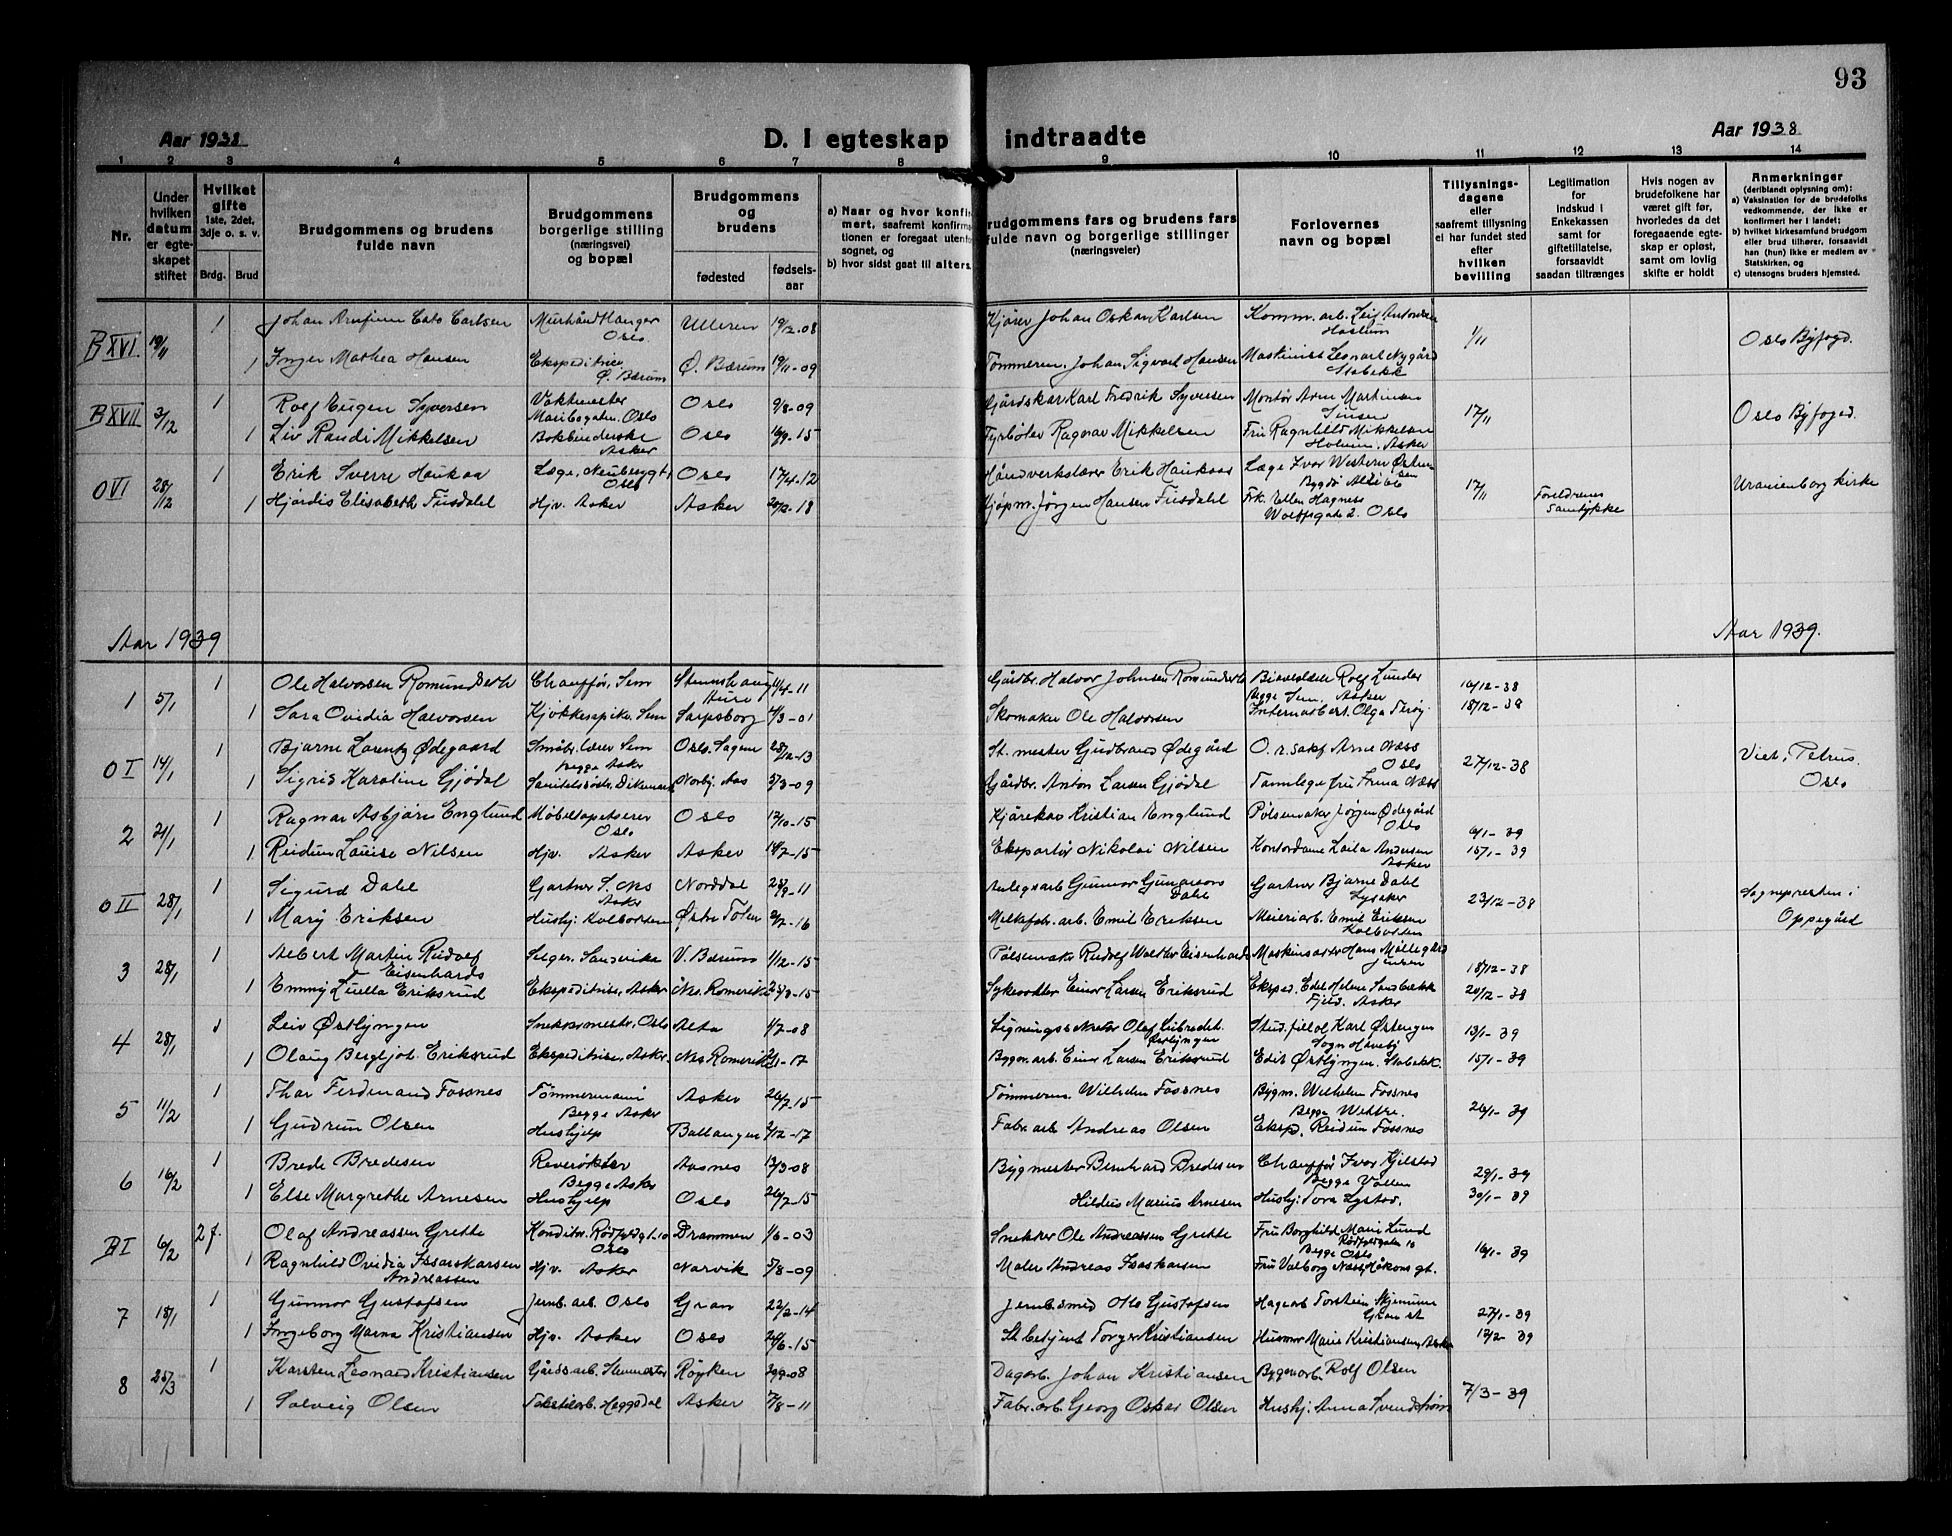 93
Aar 1938
D. I egteskap indtraadte
Aar 1938
1 2 3 4 5 6 7 8 9 10 11 12 13 14
Nr.
Under hvilken datum er egteskapet stiftet
Hvilket gifte 1ste, 2det, 3dje o. s. v.
Brdg. Brud
Brudgommens og brudens fulde navn
Brudgommens borgerlige stilling (næringsvei) og bopæl
Brudgommens og brudens
fødested
fødselsaar
a) Naar og hvor konfirmert, saafremt konfirmationen er foregaat utenfor sognet, og
b) hvor sidst gaat til alters.
rudgommens fars og brudens fars fulde navn og borgerlige stillinger (næringsveier)
Forlovernes navn og bopæl
Tillysningsdagene eller saafremt tillysning ei har fundet sted efter hvilken bevilling
Legitimation for indskud i Enkekassen samt for giftetillatelse, forsaavidt saadan tiltrænges
Hvis nogen av brudefolkene har været gift før, hvorledes da det foregaaende egteskap er opløst, samt om lovlig skifte er holdt
Anmerkninger (deriblandt oplysning om):
a) Vaksination for de brudefolks vedkommende, der ikke er konfirmert her i landet;
b) hvilket kirkesamfund brudgom eller brud tilhører, forsaavidt han (hun) ikke er medlem av Statskirken, og
c) utensogns bruders hjemsted.
B XVI. 19/11 1 Johan Arnfinn Cato Carlsen Oslo Ulleren 19/12-08 Kjører Johan Oskar Karlsen Komm. arb. Leif Antonsen Haslum 1/11 Oslo Byfogd.
1 Inger Mathea Hansen Ekspeditrice Ø. Bærum Ø. Bærum 19/11-09 Tømmerm. Johan Sigvart Hansen Maskinist Leonart Nygård Stabekk
B XVII 3/12 1 Rolf Eugen Syversen Vaktmester Maribogaten. Oslo Oslo 9/8-09 Gårdskar Karl Fredrik Syversen Montør Arne Martinsen Sinsen 17/11 Oslo Byfoged.
1 Liv Randi Mikkelsen Bokbinderske Asker Oslo 16/9-15 Fyrbøter Ragnar Mikkelsen Fru Ragnhild Mikkelsen Holmen. Asker
O VI 28/12 1 Erik Sverre Haukaa Læge, Neuberggt. Oslo Oslo 17/4-12 Håndverkslærer Erik Haukaas Læge Ivar Western Østensen Bygdø Allé 17/11 Uranienborg kirke
1 Hjørdis Elisabeth Fusdahl Hjv. Asker Asker 20/2-18 Kjøpm. Jørgen Hansen Fusdahl Frk. Ellen Hagness Wolffsgate 2. Oslo Foreldrenes samtykke
Aar 1939
Aar 1939.
1 5/1 1 Ole Halvorsen Romundseth Chauffør, Sem Stemshaug Aure 4/4-11 Gårdbr. Halvor Johnsen Romundseth Rolf Lunder Begge Sem, Asker 16/12-38
1 Sara Ovidia Halvorsen Kjøkkenpike, Sem Sarpsborg 4/3-01 Skomaker Ole Halvorsen Internatbest. Olga 18/12-38
O I 14/1 1 Bjarne Lorentz Ødegaard Småbr. lærer Sem Begge Asker Oslo. Sagene 28/12-13 St. mester Gudbrand Ødegård O. r. sakf Arne Næss Oslo 27/12-38 Viet. Petrus. Oslo
1 Sigrid Karoline Gjødal Dikemark Norby, Aas 3/3-09 Gårdbr. Anton Larsen Gjødal Tannlege fru Erna Næss
2 21/1 1 Ragnar Asbjørn Englund Møbeltapetserer Oslo Oslo 12/10-15 Kjørekar Kristian Englund Pølsemaker Jørgen Ødegård Oslo 6/1-39
1 Reidun Louise Nilsen Hjv. Asker Asker 14/7-15 Ekspartør Nikolai Nilsen Kontordame Laila Andersen Asker 15/1-39
O II 28/1 1 Sigurd Dahl Gartner S. Nes Asker Norddal 28/9-11 Anlegsarb Gunnar Gunarsons Dahl Gartner Bjarne Dahl Lysaker 23/12-38 Sognepresten i Oppegård
1 Mary Eriksen Hushj. Kolbotten Østre Toten 2/7-16 Melkefabr. arb. Emil Eriksen Meieriarb. Emil Eriksen Kolbotten
3 28/1 1 Albert Martin Rudolf Eisenhardt Selger. Sandvika V. Bærum 1/12-15 Pølsemaker Rudolf Walter Eisenhardt Maskinsetter Hans Møllegård Jensen 18/12-38
1 Emmy Luella Eriksrud Ekspeditrise, Asker Nes. Romerike Einar Larsen Eriksrud Eksped. Edel Helene Sandbækk Fjeld. Asker 20/12-38
4 28/1 1 Leiv Østlyngen Snekkermestr, Oslo Alta 1/7-08 Ligningssekretær Olaf Østlyngen Stud. filol Karl Østlyngen Sogn Haveby 13/1-39
1 Olaug Bergljot Eriksrud Ekspeditrise, Asker Nes Romerike 2/1-17 Bygn. arb. Einar Larsen Eriksrud Edit Østlyngen. Stabekk. 15/1-39
5 11/2 1 Thor Ferdinand Fossnes Tømmermann Begge Asker Asker 26/7-15 Tømmerm. Wilhelm Fossnes Bygm. Wilhelm Fossnes Begge Wettre. 26/1-39
1 Gudrun Olsen Hushjelp Ballangen 2/12-17 Fabr. arb Andreas Olsen Eksp. Reidun Fossnes
6 16/2 1 Brede Bredesen Reverøkter Begge Asker Aasnes 13/3-08 Bygmester Bernhard Bredesen Chauffør Ivar Kjelstad Begge Vollen 29/1-39
1 Else Margrethe Arnesen Hushjelp Oslo 26/7-15 Hildus Marius Arnesen Hushj. Tora Lystad. 30/1-39
B I 6/2 2 g. Olaf Andreassen Grette Konditor. Rødfyldgt. 10 Oslo Drammen 1/6-03 Snekker Ole Andreassen Grette Fru Borghild Marie Lund Rødfyldgaten 10 Begge Oslo 16/1-39
1 Ragnhild Ovidia Isaaskarsen Andreassen Hjv. Asker Narvik 3/8-09 Maler Andreas Isaskarsen Fru Valborg Næss, Håkons gt.
7 18/1 1 Gunnar Gustafsen Jernb. arb. Oslo Gran 22/2-14 Jernb. smed Otto Gustafsen Hagearb Torstein Skjennum Gran st 27/1-39
1 Ingeborg Marna Kristiansen Hjv. Asker Oslo 20/6-15 St. betjent Torger Kristiansen Husmor Marie Kristiansen, Asker 12/2-39
8 25/3 1 Karsten Leonard Kristiansen Gårdsarb. Røyken 29/9-08 Dagarb. Johan Kristiansen Bygn. arb. Rolf Olsen 7/3-39
1 Solveig Olsen Tekstilarb. Heggedal Asker 7/8-11 Fabr. arb. Georg Oskar Olsen Hushj. Anna Svendstrøm